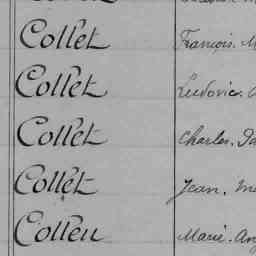 Collet François. M
Collet Ludovic.
Collet Charles.
Collet Jean.
Colleu Marie.